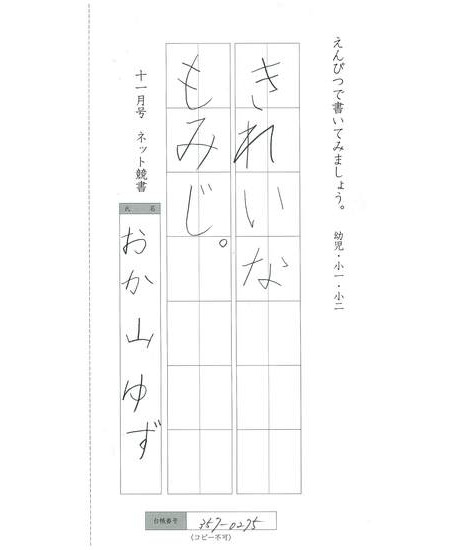 えんぴつで書いてみましょう。 幼児・小一・小二
きれいな
もみじ。
十一月号 ネット競書
氏 名
おか山ゆず
台帳番号
357-0275
(コピー不可)